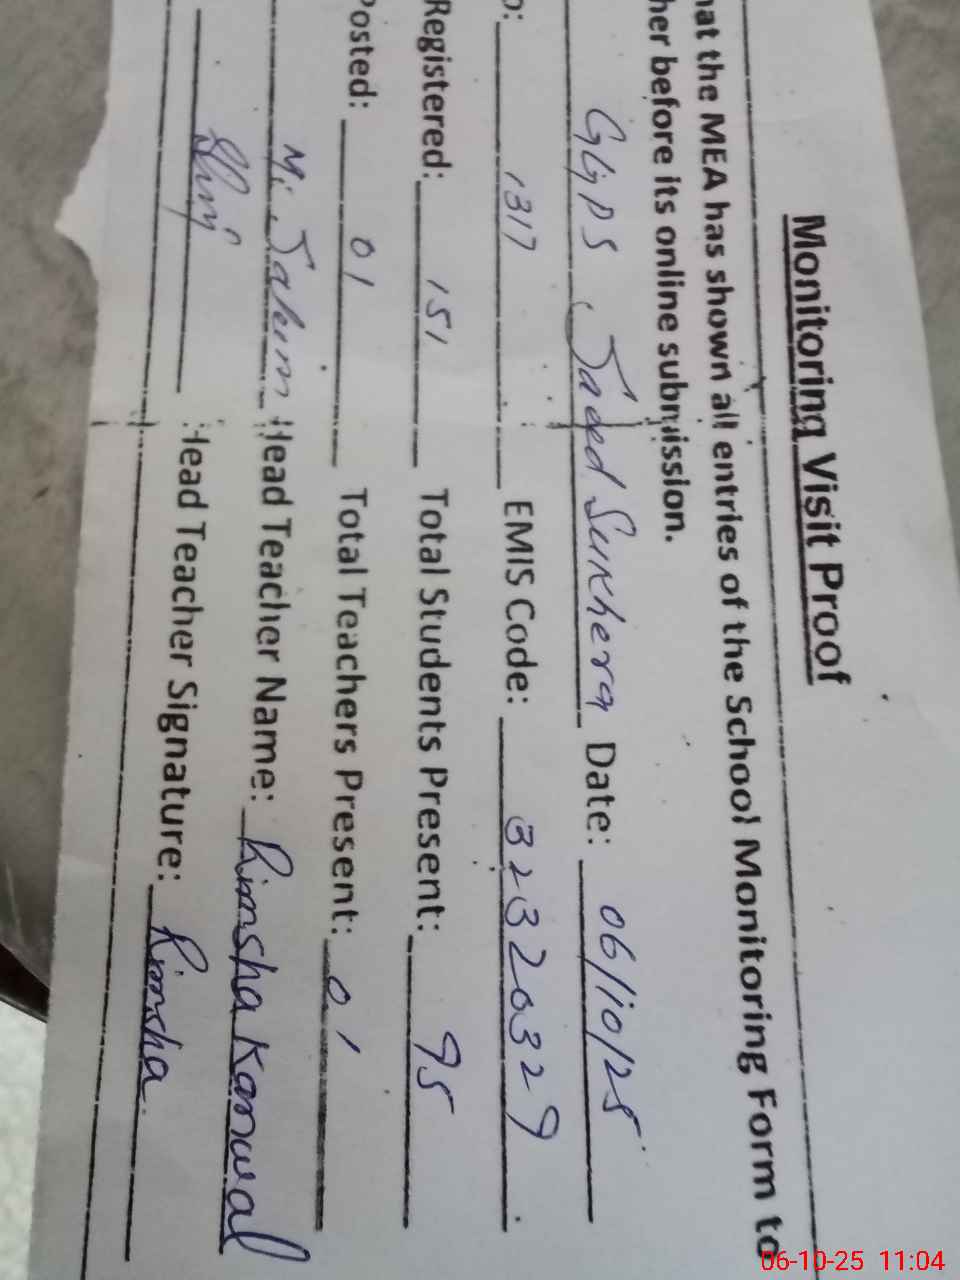 Monitoring Visit Proof
hat the MEA has shown all entries of the School Monitoring Form to
her before its online submission.
GGPS, Saeed Sukhera Date: 06/10/25
o: 1317 EMIS Code: 32320329
Registered: 151 Total Students Present: 95
Posted: 01 Total Teachers Present: 01
M. Saleem Head Teacher Name: Rimsha Kanwal
Head Teacher Signature: Rimsha
06-10-25 11:04